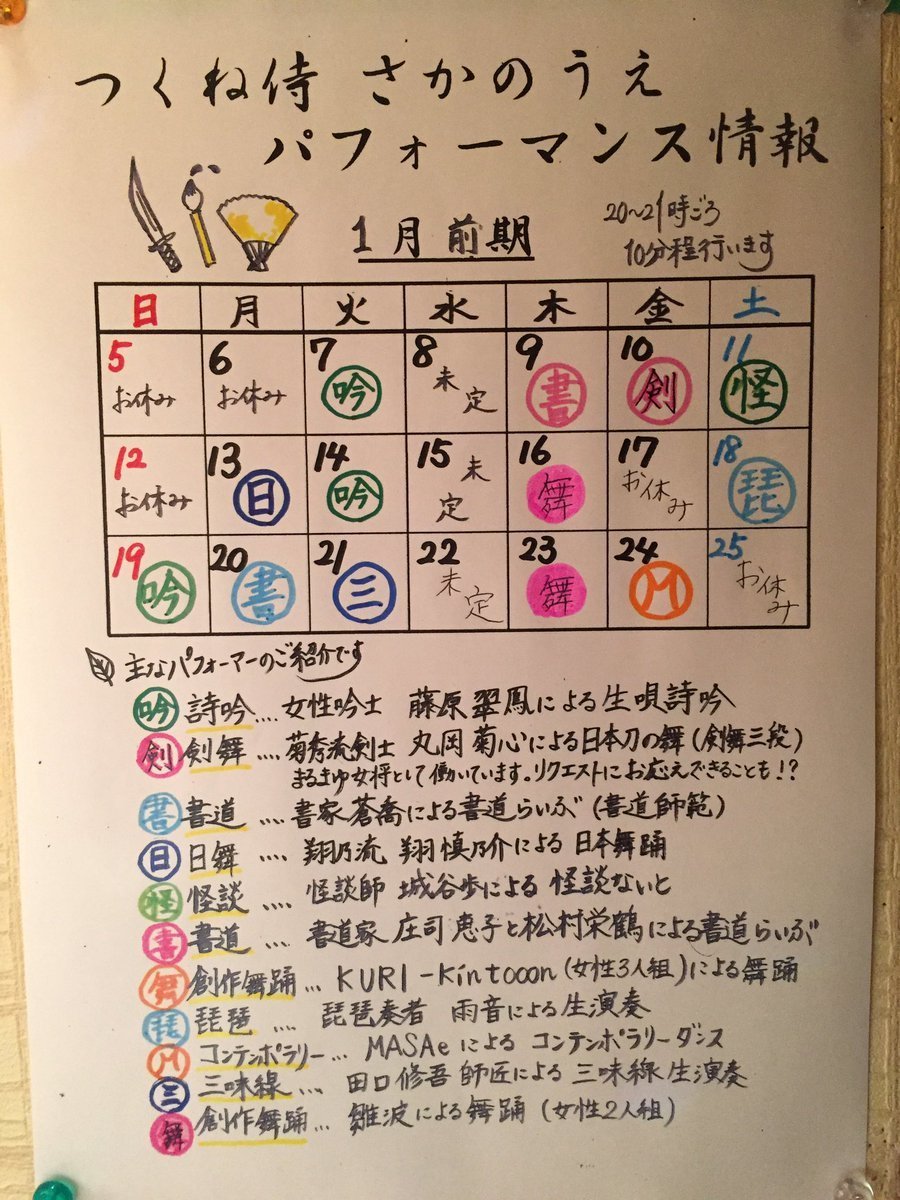 つくね侍 さかのうえ
パフォーマンス情報
1月前期
20〜21時ごろ
10分程行います
日 月 火 水 木 金 土
5 6 7 8 9 10 11
お休み お休み 吟 未定 書 剣 怪
12 13 14 15 16 17 18
お休み 日 吟 未定 舞 お休み 琵
19 20 21 22 23 24 25
吟 書 三 未定 舞 M お休み
主なパフォーマーのご紹介です
吟 詩吟.... 女性吟士 藤原翠鳳による生唄詩吟
剣 剣舞.... 菊秀流剣士 丸岡菊心による日本刀の舞(剣舞三段)
まるきゆ女将として働いています。リクエストにお応えできることも!?
書 書道.... 書家 蒼喬による書道らいぶ(書道師範)
日 日舞.... 翔乃流 翔慎乃介による日本舞踊
怪 怪談.... 怪談師 城谷歩による怪談ないと
書 書道.... 書道家 庄司恵子と松村栄鶴による書道らいぶ
舞 創作舞踊... KURI-Kintooon(女性3人組)による舞踊
琵 琵琶.... 琵琶奏者 雨音による生演奏
M コンテンポラリー... MASAeによる コンテンポラリーダンス
三 三味線.... 田口修吾師匠による三味線生演奏
舞 創作舞踊... 雛波による舞踊(女性2人組)